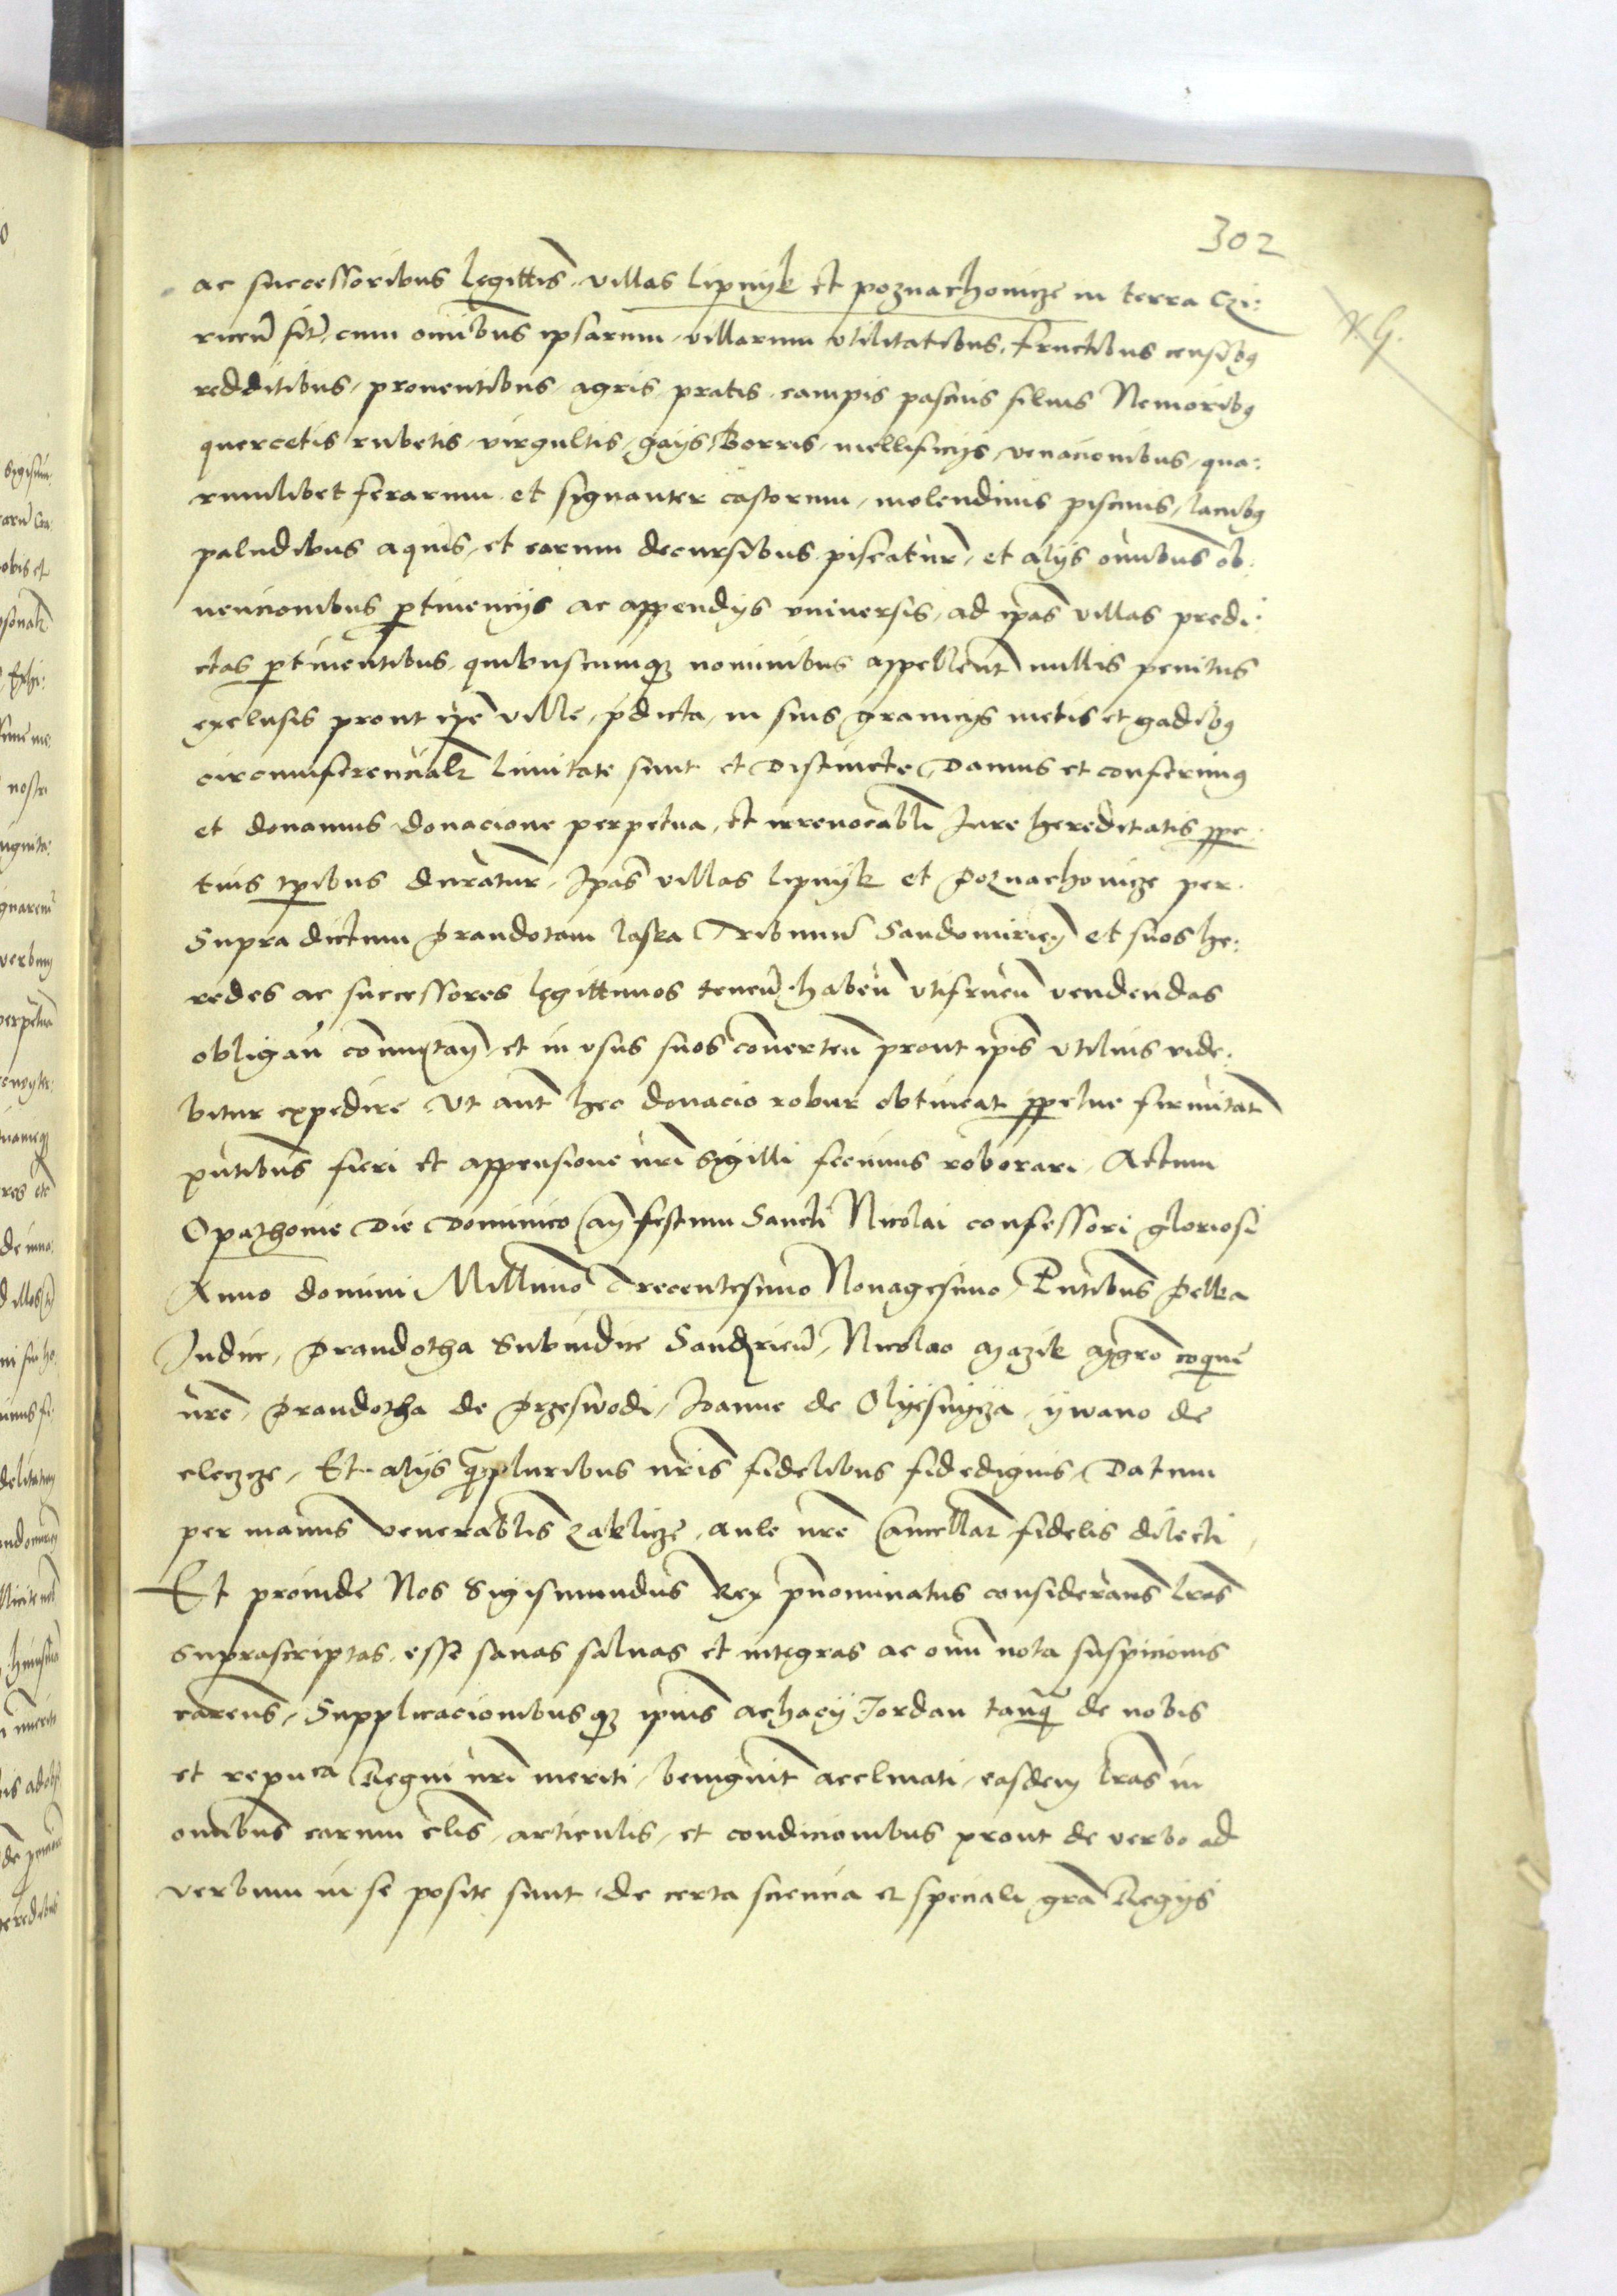 302
ac successoribus legittis̄ villas lipnyk et poznachowicze in terra Czi:
ricen̄ sit̄ cum omībus ipsarum villarum utilitatibus, fructibus censibꝫ
redditibus, proventibus, agris pratis campis pascuis silvis Nemoribꝫ
quercetis rubetis virgultis, gays, Borris, mellificijs, venacionibus, qua:
rumlibet ferarum et signanter castorum, molendinis piscinis, lacubꝫ
paludibus aquis, et earum decursibus piscatur̄, et alijs om̄ibus ob:
vencionibus ꝑtinencijs ac appendijs universis, ad ipās villas predi:
ctas ꝑtinentibus, quibuscumqꝫ nominibus appellent̄ nullis penitus
exclusis prout ip̄e ville, p̄dicta, in suis granicijs metis et gadibꝫ
circumferencialr̄ limitate sunt et Distincte, Damus et conferimꝫ
et donamus donacione perpetua, et irrevocabl̄i Jure hereditatis ꝑpe
tuis tꝑibus duratur̄, Jpās villas lipnyk et Poznachowicze per
Supra dictum Prandotam laska Tribunū Sandomirien̄ et suos he:
redes ac successores legittimos tenen̄, haben̄ utifruen̄ vendendas
obligan̄ com̄utan̄ et in usus suos converten̄ prout ip̄is utilius vide:
bitur expedire Ut aut̄ hec donacio robur obtineat ꝑpetue firmitat̄
pn̄tibus fieri et appensione nr̄i sigilli fecimus roborari, Actum
Opathowie Die Dominico an̄ festum Sancti Nicolai confessori gloriosi
Anno domini Millimo Trecentesimo Nonagesimo, Pn̄tibus Pelka
Judice, Prandotha Subiudice Sandrien̄, Nicolao Mazik mgr̄o coquīe
nr̄e, Prandotha de Przeswodi, Joanne de Olyesnycza, ywano de
clecze, Et alijs qꝫpluribus nr̄is fidelibus fidedignis, Datum
per manus venerabl̄is Zaklicze, aule nr̄e Cancellar̄ fidelis dilecti
Et proinde Nos Sigismundus Rex pn̄ominatus considerans lr̄as
suprascriptas, esse sanas salvas et integras ac om̄i nota suspicionis
carens, Supplicacionibusqꝫ ip̄ius achacy Jordan tanqꝫ de nobis
et repuca Regni nr̄i meriti, benignit̄ acclinati, easdem lr̄as in
omībus earum cl̄is, articulis, et condicionibus prout de verbo ad
verbum in se posite sunt, de certa sciencia et speciali gr̄a Regijs